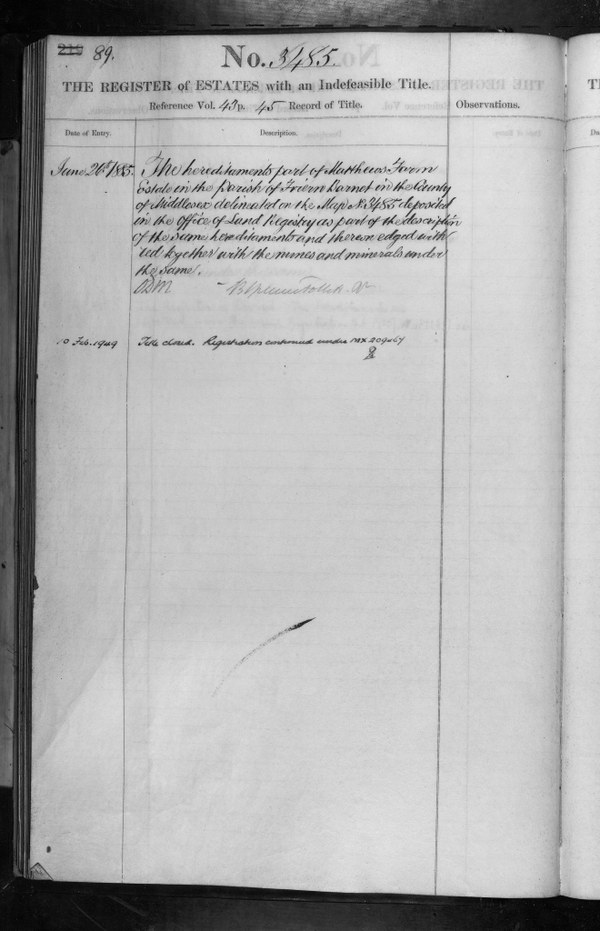 216 89.
No. 3485.
THE REGISTER of ESTATES with an Indefeasible Title.
Reference Vol. 43 p. 45 Record of Title.
Observations.
Date of Entry.
Description.
June 26th 1885. The hereditaments part of Matthews Farm
Estate in the Parish of Friern Barnet in the County
of Middlesex delineated on the Map No. 3485 deposited
in the office of Land Registry as part of the description
of the same hereditaments and thereon edged with
red together with the mines and minerals under
the same.
10 Feb. 1949 Title closed. Registration continued under MX 209467